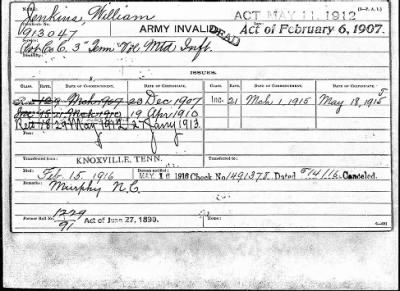 Jenkins, William ACT MAY 11, 1912 (3-P. A. I.)
913047 ARMY INVALID DEAD Act of February 6, 1907.
Corp Co C. 3" Tenn Vol. Mtd Inf.
ISSUES.
CLASS. RATE. DATE OF COMMENCEMENT. DATE OF CERTIFICATE. CLASS. RATE. DATE OF COMMENCEMENT. DATE OF CERTIFICATE.
12 Mch 1907 23 Dec 1907 Inc. 21 Mch 1, 1915 May 18, 1915
Inc. 15 19 Apr 1910
18 29 May 1912 27 Jany 1913
Transferred from KNOXVILLE, TENN. Transferred to
Died Feb. 15, 1916 Bureau notified MAY 1916 Check No. 1491378 Dated Canceled.
Remarks: Murphy N.C.
Former Roll No. 1229/91 Act of June 27, 1890. Home: